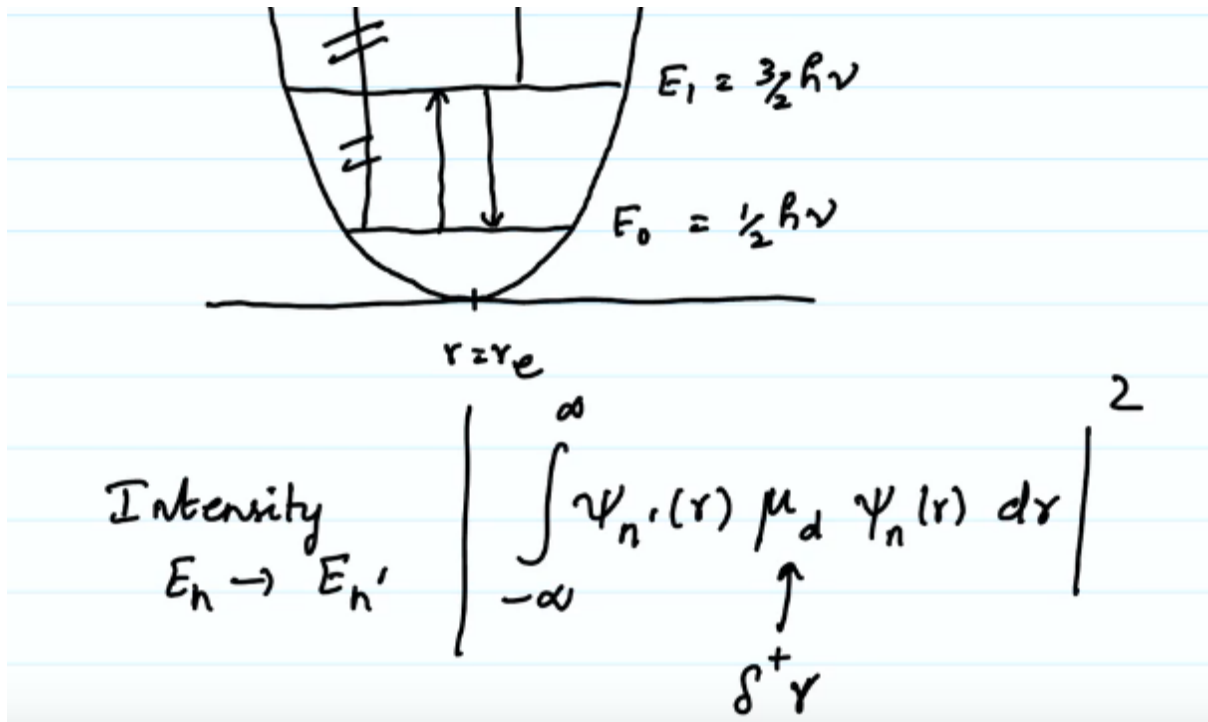 E₁ = 3/2 hν
E₀ = 1/2 hν
r = rₑ
Intensity | ∫_{-∞}^{∞} ψₙ′(r) μ_d ψₙ(r) dr |²
Eₙ → Eₙ′
δ⁺r